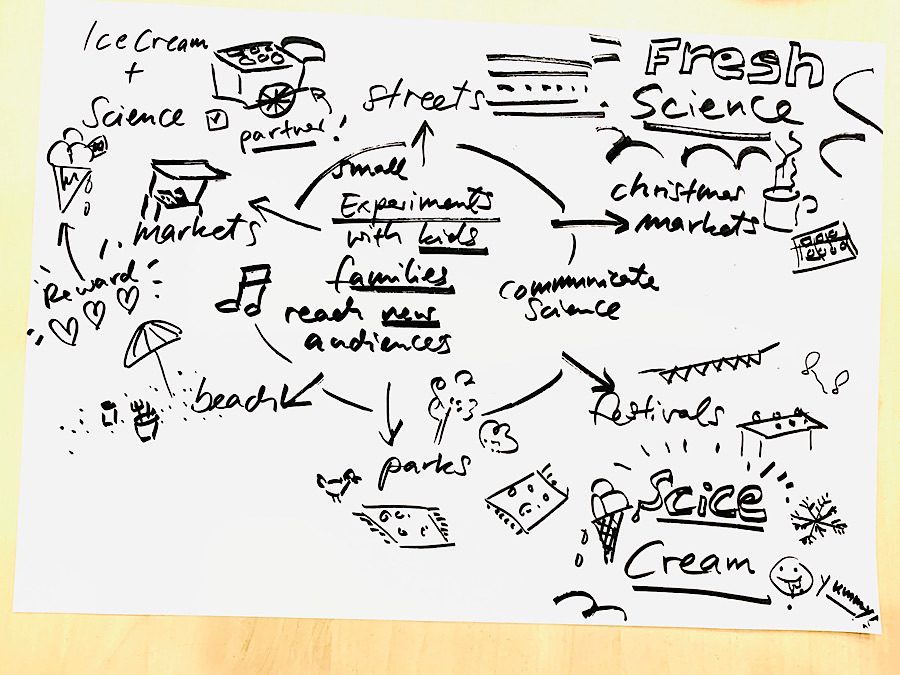 Ice Cream
+
Science
partner!
Reward
markets
streets
small
Experiments
with kids
families
reach new
audiences
communicate
Science
beach
parks
Fresh
Science
christmas
markets
festivals
Scice
Cream
Yummy!